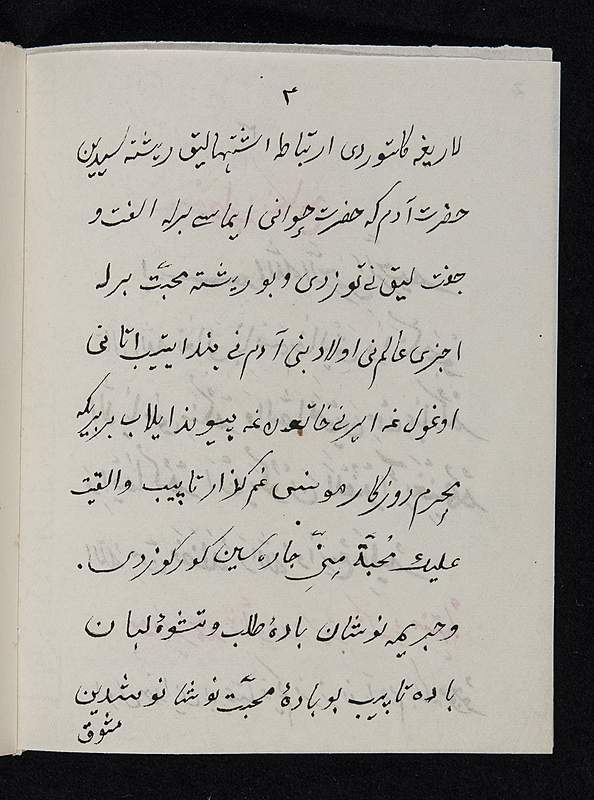 ۳
لاریغه کلتوردی ارتباط اشتهالیق ریشته سیدین
حضرت آدم که حضرت حوانی ایماسی برله الفت و
جفت لیق نی توزدی و بو ریشته محبت برله
اجزی عالم نی اولاد بنی آدم نی بند ایتیب اتا نی
اوغول غه ایرنی خاتون غه پیوند ایلاب بربریکه
محرم روزکار مونسی غم کذار تاپیب والقیت
علیك مُحبّة مِنّی جاره سین کورکوزدی.
و جریمه نوشان بادهٔ طلب و تشوهٔ لبان
باده تاپیب بو بادهٔ محبّت نوشا نوشدین
مشوق